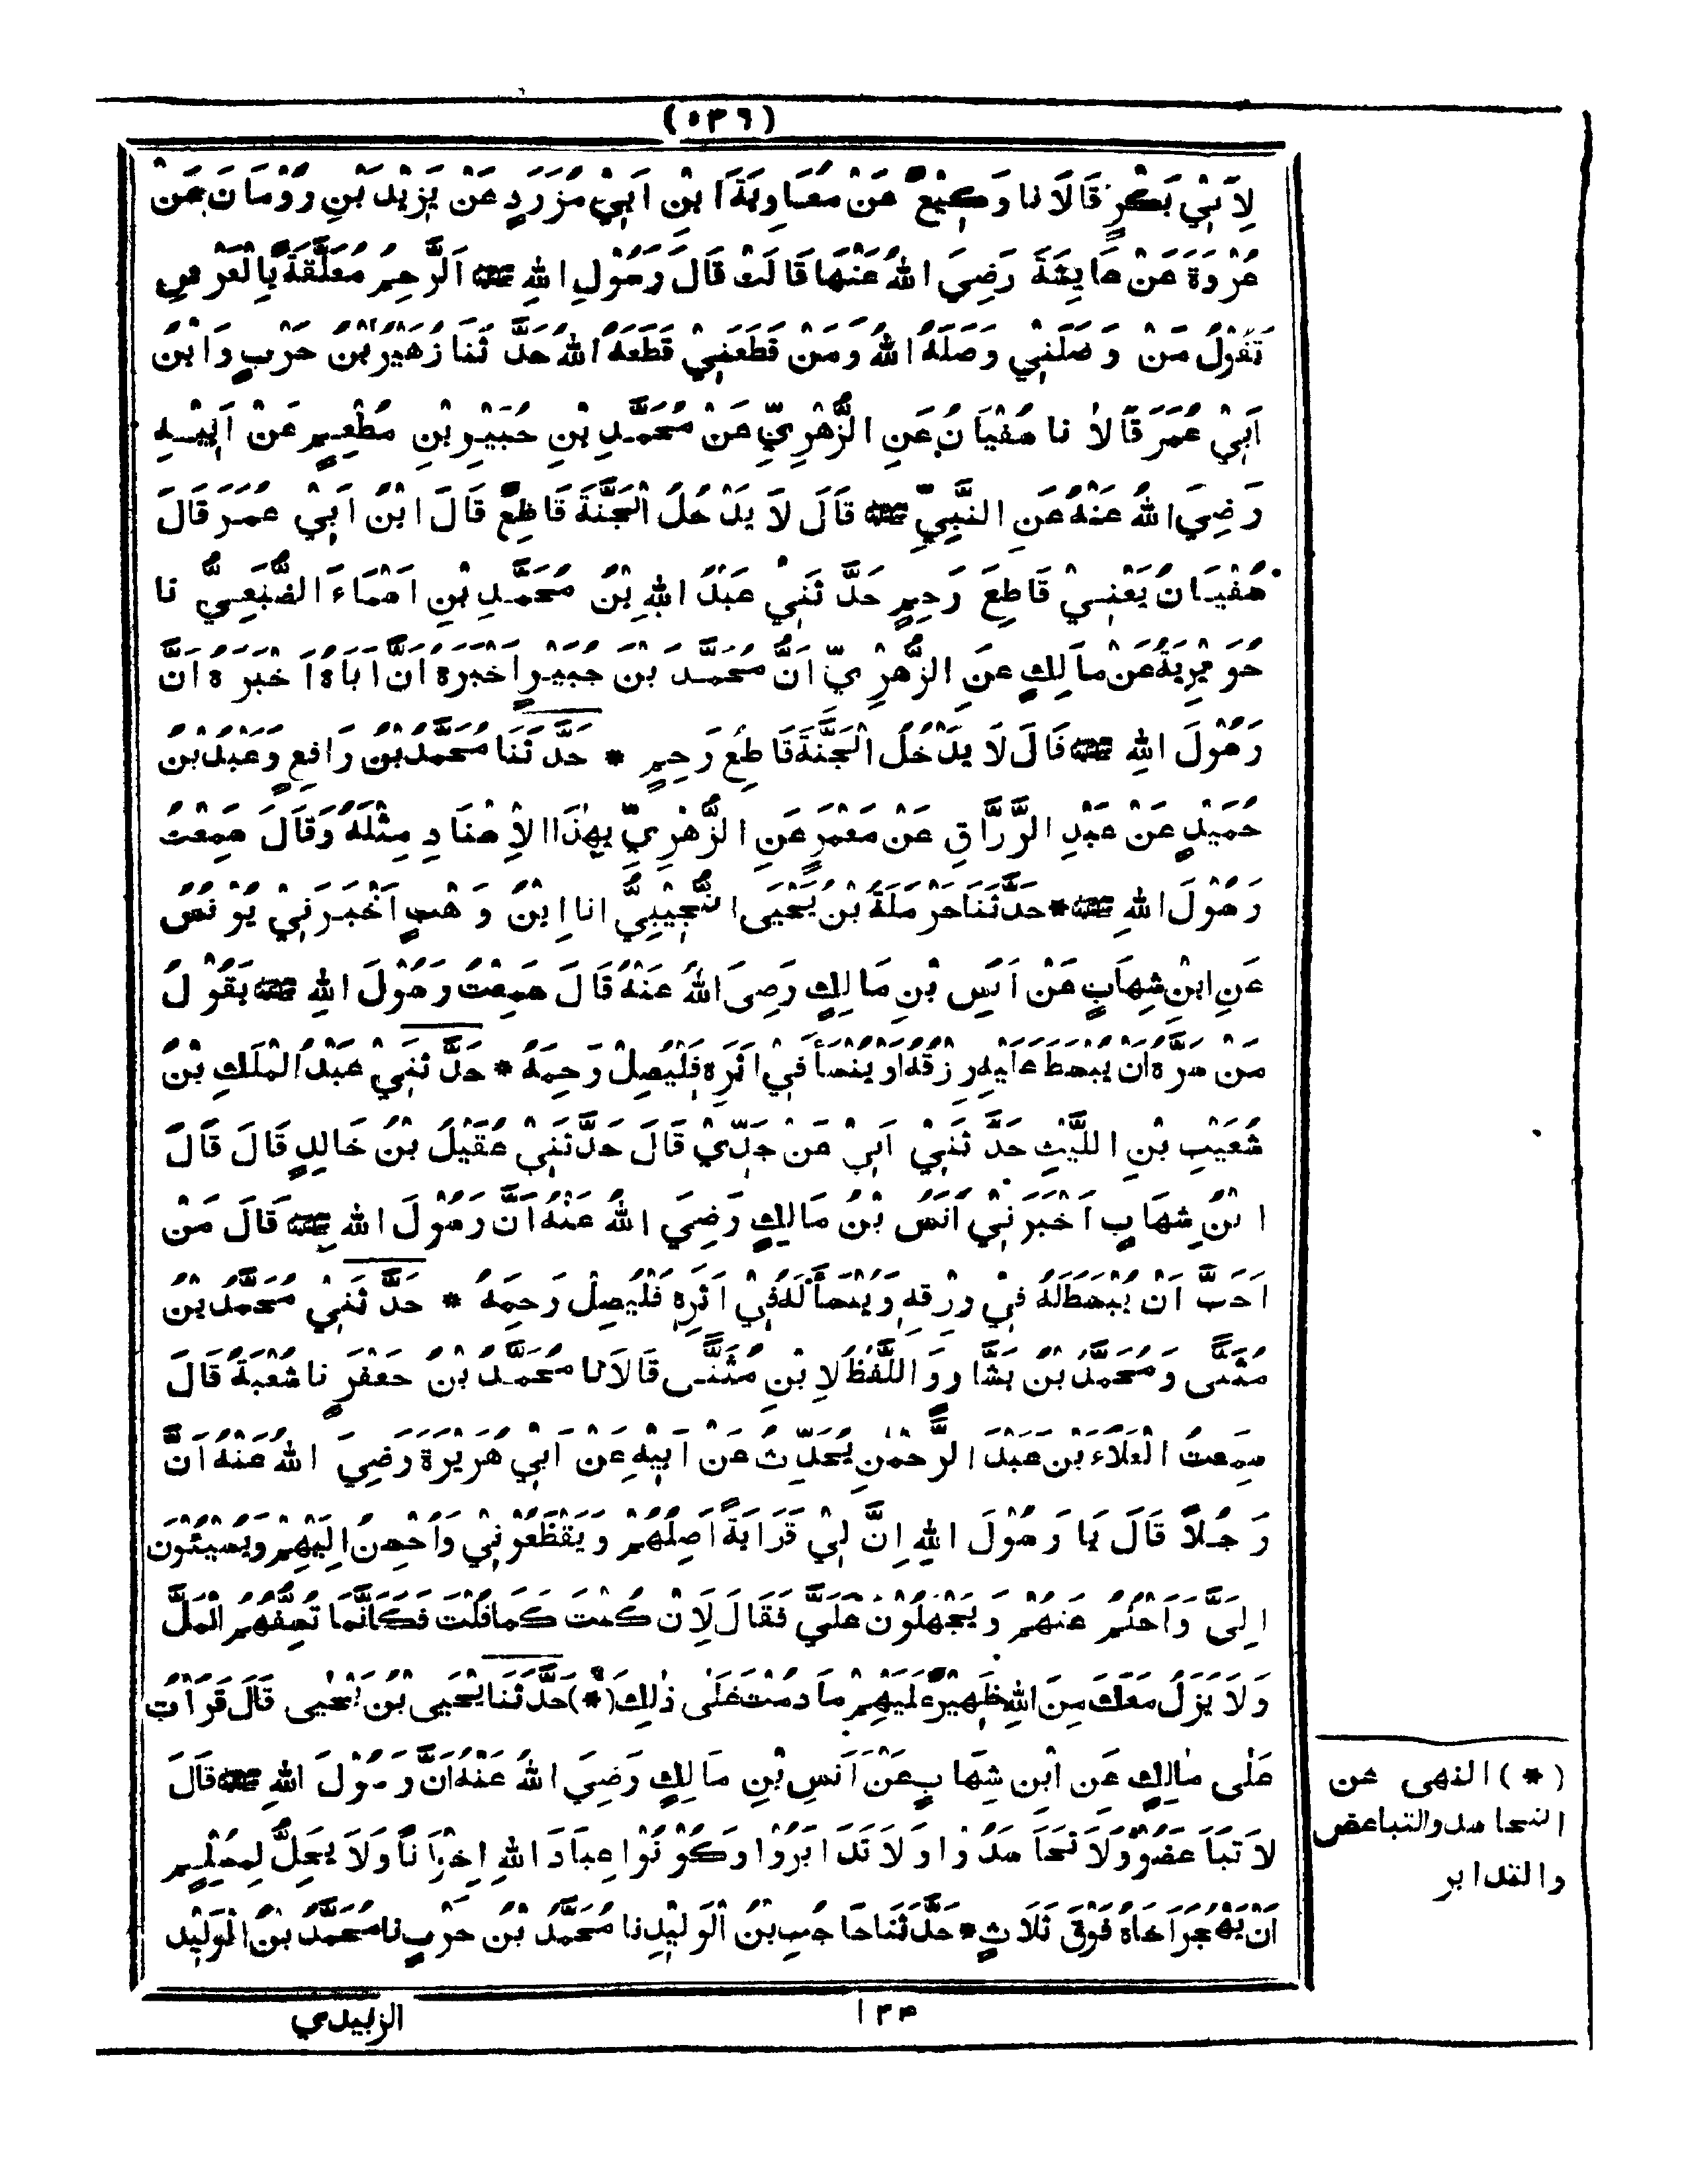 (٥٣٦)
لِاَبِيْ بَكْرٍ قَالَا نا وَكِيْعٌ عَنْ مُعَاوِيَةَ ابْنِ اَبِيْ مُزَرَّدٍ عَنْ يَزِيْدَ بْنِ رُوْمَانَ عَنْ
عُرْوَةَ عَنْ عَايِشَةَ رَضِيَ اللهُ عَنْهَا قَالَتْ قَالَ رَسُوْلِ اللهِ ﷺ اَلرَّحِمُ مُعَلَّقَةٌ بِالْعَرْشِ
تَقُوْلُ مَنْ وَصَلَنِيْ وَصَلَهُ اللهُ وَمَنْ قَطَعَنِيْ قَطَعَهُ اللهُ حَدَّ ثَنَا زُهَيْرُ بْنُ حَرْبٍ وَابْنُ
اَبِيْ عُمَرَ قَالَا نا سُفْيَانُ عَنِ الزُّهْرِيِّ عَنْ مُحَمَّدِ بْنِ جُبَيْرِ بْنِ مُطْعِمٍ عَنْ اَبِيْهِ
رَضِيَ اللهُ عَنْهُ عَنِ النَّبِيِّ ﷺ قَالَ لَا يَدْ خُلُ الْجَنَّةَ قَاطِعٌ قَالَ ابْنُ اَبِيْ عُمَرَ قَالَ
سُفْيَانُ يَعْنِيْ قَاطِعَ رَحِمٍ حَدَّ ثَنِيْ عَبْدُ اللهِ بْنُ مُحَمَّدِ بْنِ اَسْمَاءَ الضُّبَعِيُّ نا
جُوَيْرِيَةُ عَنْ مَالِكٍ عَنِ الزُّهْرِيِّ اَنَّ مُحَمَّدَ بْنَ جُبَيْرٍ اَخْبَرَهُ اَنَّ اَبَاهُ اَخْبَرَهُ اَنَّ
رَسُوْلَ اللهِ ﷺ قَالَ لَا يَدْخُلُ الْجَنَّةَ قَاطِعُ رَحِمٍ * حَدَّ ثَنَا مُحَمَّدُ بْنُ رَافِعٍ وَعَبْدُ بْنُ
حُمَيْدٍ عَنْ عَبْدِ الرَّزَّاقِ عَنْ مَعْمَرٍ عَنِ الزُّهْرِيِّ بِهٰذَا الْاِسْنَادِ مِثْلَهُ وَقَالَ سَمِعْتُ
رَسُوْلَ اللهِ ﷺ * حَدَّ ثَنَا حَرْمَلَةُ بْنُ يَحْيَى التُّجِيْبِيُّ انا ابْنُ وَهْبٍ اَخْبَرَنِيْ يُوْنُسُ
عَنِ ابْنِ شِهَابٍ عَنْ اَنَسِ بْنِ مَالِكٍ رَضِىَ اللهُ عَنْهُ قَالَ سَمِعْتُ رَسُوْلَ اللهِ ﷺ يَقُوْلُ
مَنْ سَرَّهُ اَنْ يُبْسَطَ عَلَيْهِ رِزْقُهُ اَوْ يُنْسَأَ فِيْ اَثَرِهِ فَلْيَصِلْ رَحِمَهُ * حَدَّ ثَنِيْ عَبْدُ الْمَلِكِ بْنُ
شُعَيْبِ بْنِ اللَّيْثِ حَدَّ ثَنِيْ اَبِيْ عَنْ جَدِّيْ قَالَ حَدَّ ثَنِيْ عُقَيْلُ بْنُ خَالِدٍ قَالَ قَالَ
ابْنُ شِهَابٍ اَخْبَرَنِيْ اَنَسُ بْنُ مَالِكٍ رَضِيَ اللهُ عَنْهُ اَنَّ رَسُوْلَ اللهِ ﷺ قَالَ مَنْ
اَحَبَّ اَنْ يُبْسَطَ لَهُ فِيْ رِزْقِهِ وَيُنْسَأَ لَهُ فِيْ اَثَرِهِ فَلْيَصِلْ رَحِمَهُ * حَدَّ ثَنِيْ مُحَمَّدُ بْنُ
مُثَنَّى وَمُحَمَّدُ بْنُ بَشَّارٍ وَاللَّفْظُ لِابْنِ مُثَنَّى قَالَا نا مُحَمَّدُ بْنُ جَعْفَرٍ نا شُعْبَةُ قَالَ
سَمِعْتُ الْعَلَاءَ بْنَ عَبْدِ الرَّحْمٰنِ يُحَدِّثُ عَنْ اَبِيْهِ عَنْ اَبِيْ هُرَيْرَةَ رَضِيَ اللهُ عَنْهُ اَنَّ
رَجُلًا قَالَ يَا رَسُوْلَ اللهِ اِنَّ لِيْ قَرَابَةً اَصِلُهُمْ وَيَقْطَعُوْنِيْ وَاُحْسِنُ اِلَيْهِمْ وَيُسِيْئُوْنَ
اِلَىَّ وَاَحْلُمُ عَنْهُمْ وَيَجْهَلُوْنَ عَلَيَّ فَقَالَ لَاِنْ كُنْتَ كَمَا قُلْتَ فَكَاَنَّمَا تُسِفُّهُمُ الْمَلَّ
وَلَا يَزَلُ مَعَكَ مِنَ اللهِ ظَهِيْرٌ عَلَيْهِمْ مَا دُمْتَ عَلٰى ذٰلِكَ (*) حَدَّ ثَنَا يَحْيَى بْنُ يَحْيٰى قَالَ قَرَأْتُ
عَلٰى مَالِكٍ عَنِ ابْنِ شِهَابٍ عَنْ اَنَسِ بْنِ مَالِكٍ رَضِيَ اللهُ عَنْهُ اَنَّ رَسُوْلَ اللهِ ﷺ قَالَ
لَا تَبَاغَضُوْا وَلَا تَحَاسَدُوْا وَلَا تَدَابَرُوْا وَكُوْنُوْا عِبَادَ اللهِ اِخْوَانًا وَلَا يَحِلُّ لِمُسْلِمٍ
اَنْ يَهْجُرَ اَخَاهُ فَوْقَ ثَلَاثٍ * حَدَّ ثَنَا حَاجِبُ بْنُ الْوَلِيْدِ نا مُحَمَّدُ بْنُ حَرْبٍ نا مُحَمَّدُ بْنُ الْوَلِيْدِ
(*) النهى عن
التحاسد والتباغض
والتدابر
١٣٤
الزبيدي